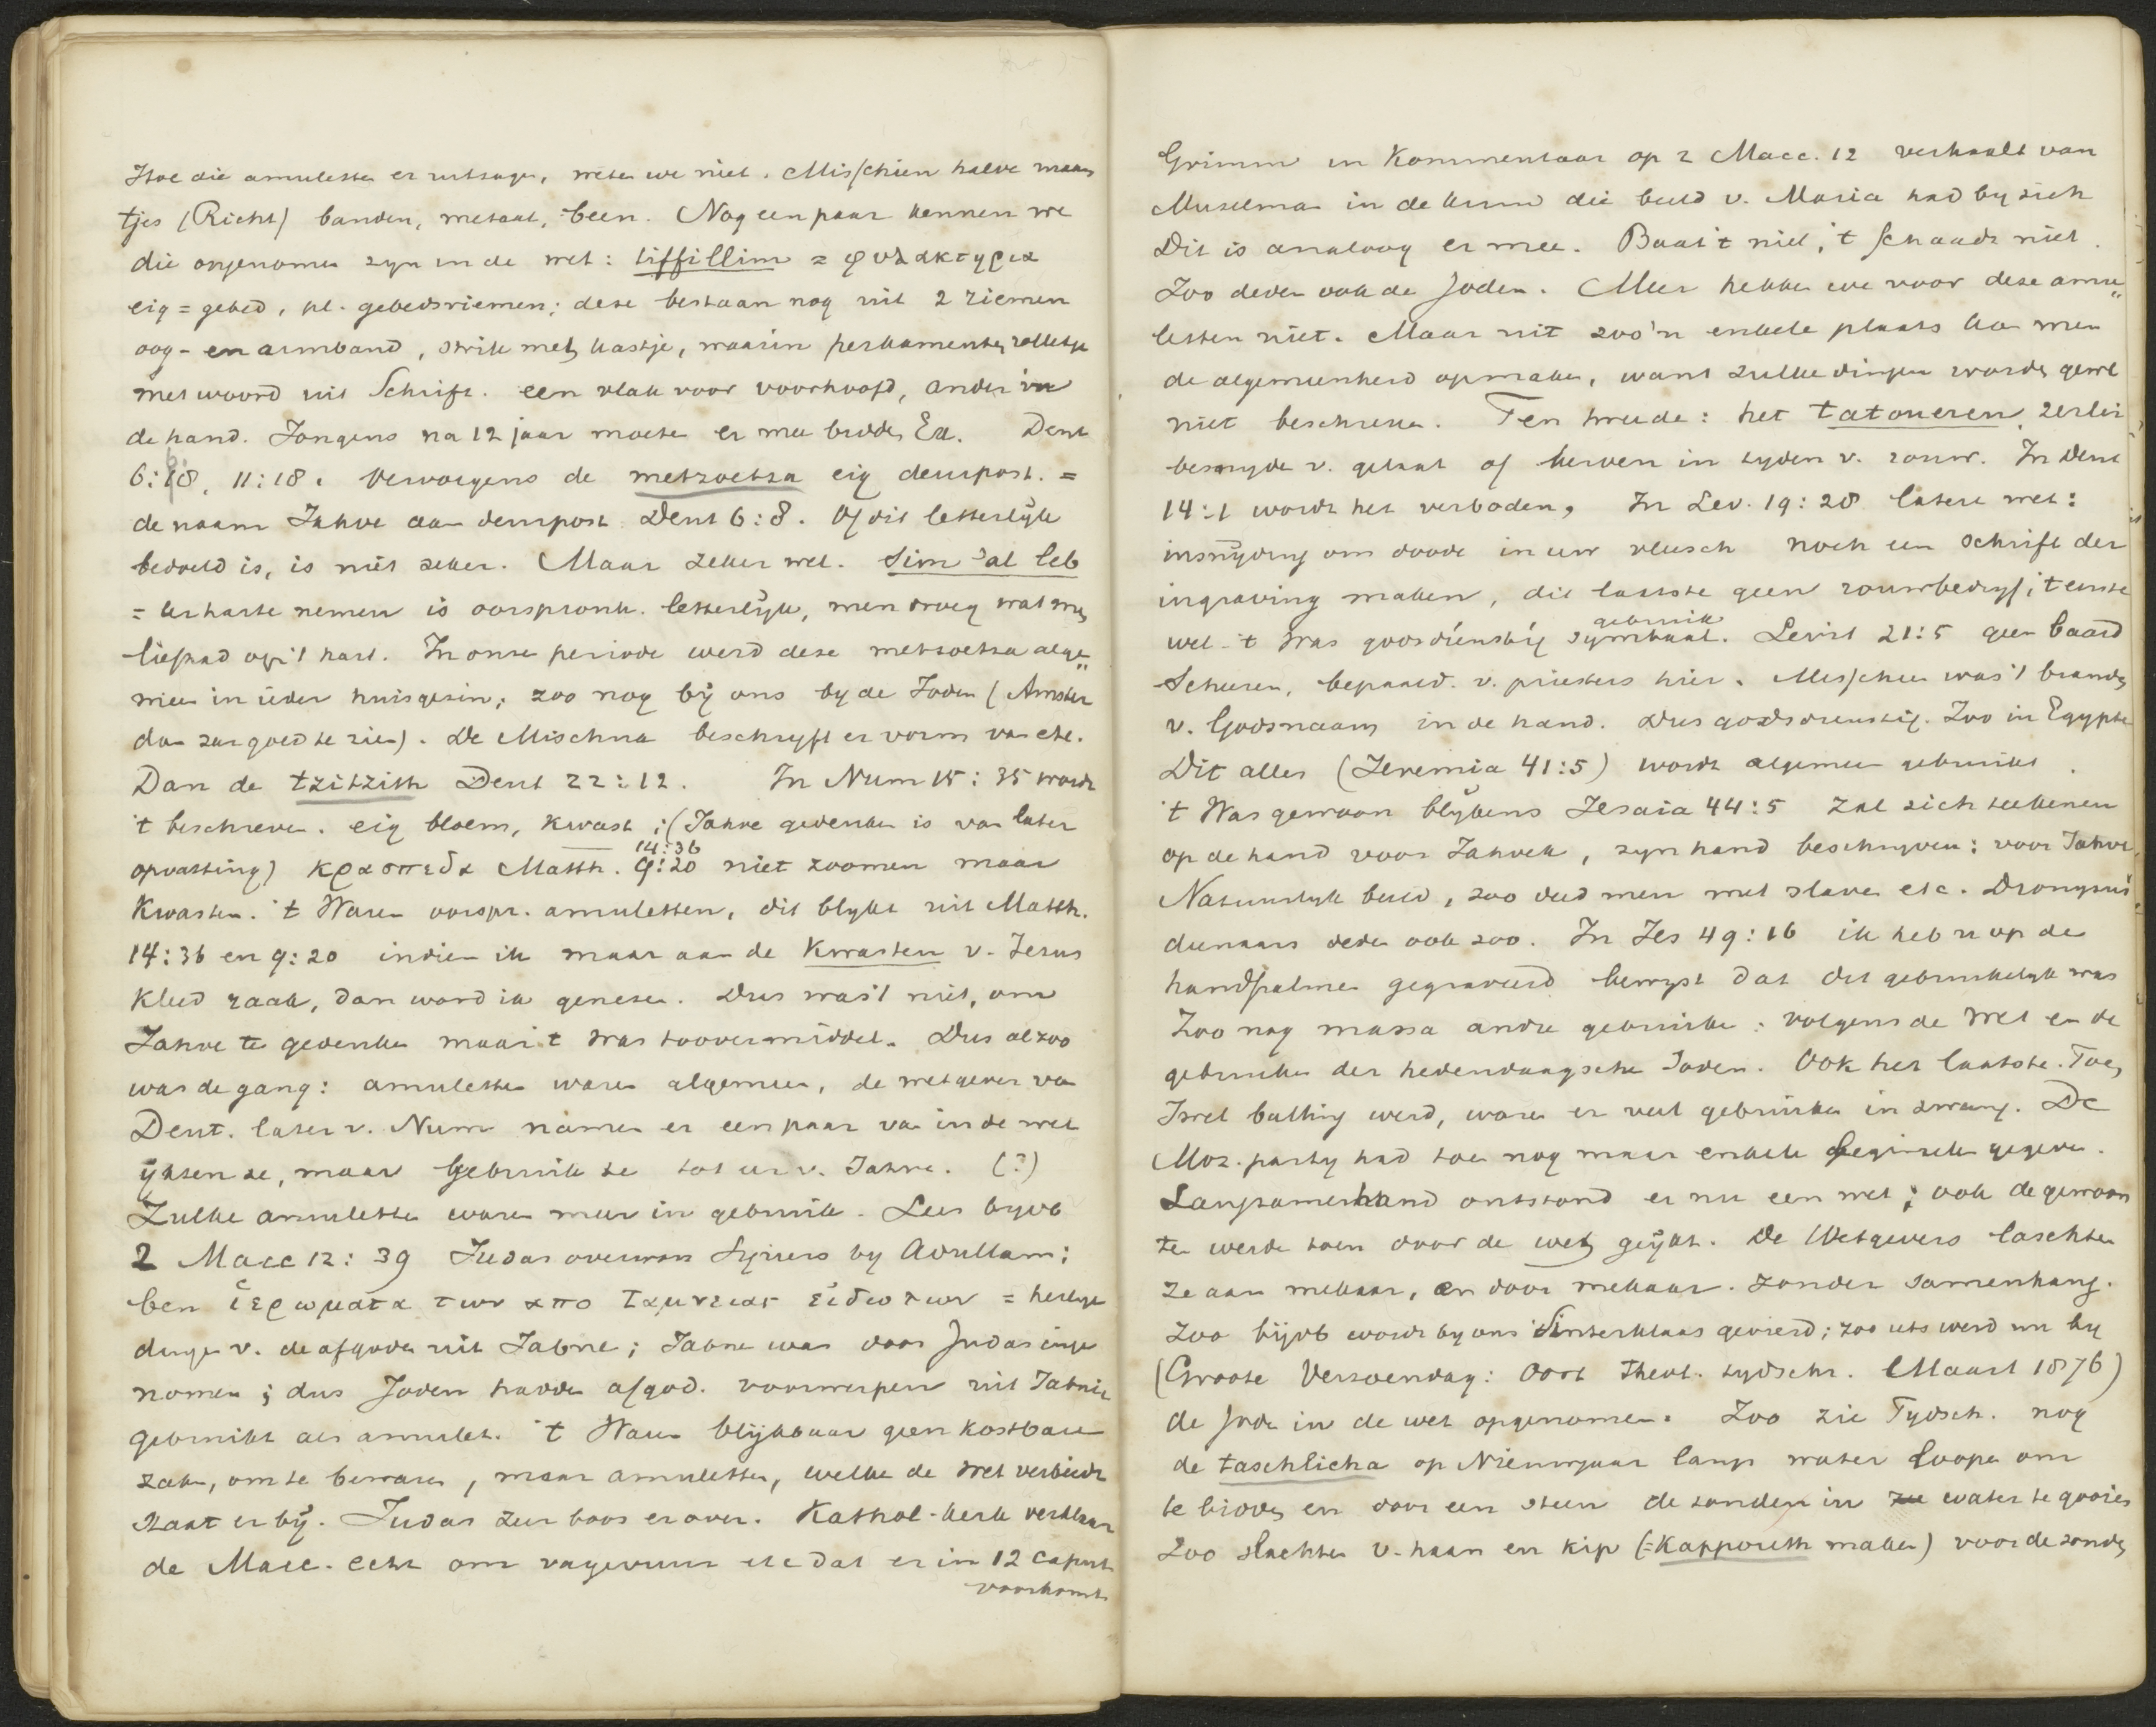 Hoe die amuletten er uitzagen, weten we niet. Misschien halve maan
tjes (Richt) banden, metaal, been. Nog een paar kennen we
die opgenomen zyn in de wet: tiffillim = φυλακτηρια
eig = gebed, pl. gebedsriemen; deze bestaan nog uit 2 riemen
oog- en armband, strik met kastje, waarin perkamenten rolletje
met woord uit Schrift. een vlak voor voorhoofd, ander in
de hand. Jongens na 12 jaar moeten er mee bidden Ex. Deut
6:8, 11:18. Vervolgens de metzoetza eig deurpost. =
de naam Jahve aan deurpost Deut 6:8. Of dit letterlyk
bedoeld is, is niet zeker. Maar zeker wel. Sim 'al leb
= ter harte nemen is oorspronk. letterlyk, men droeg wat men
lief had op 't hart. In onze periode werd deze metzoetza alge„
meen in ieder huisgezin; zoo nog bÿ ons by de Joden (Amster
dam zeer goed te zien). De Mischna beschryft er vorm van etc.
Dan de tzitzith Deut 22:12. In Num 15:35 wordt
't beschreven. eig bloem, kwast; (Jahve gedenken is van later
14:36
opvatting) κρασπεδα Matth. 9:20 niet zoomen maar
Kwasten. 't Waren oorspr. amuletten, dit blykt uit Matth.
14:36 en 9:20 indien ik maar aan de Kwasten v. Jezus
kleed raak, dan word ik genezen. Dus was 't niet, om
Jahve te gedenken maar 't was toovermiddel. Dus alzoo
was de gang: amuletten waren algemeen, de wetgever van
Deut. later v. Num namen er een paar van in de wet
ÿkten ze, maar gebruikte ze tot eer v. Jahve. (?)
Zulke amuletten waren meer in gebruik. Lees byvb
2 Macc 12:39 Judas overwon Syriers by Adullam;
ben ἱερωματα των απο Ιαμνειας εἰδωλων = heilige
dingen v. de afgoden uit Jabne; Jabne was door Judas inge
nomen; dus Joden hadden afgod. voorwerpen uit Jabnie
gebruikt als amulet. 't Waren blÿkbaar geen kostbare
zaken, om te bewaren, maar amuletten, welke de wet verbiedt
staat er bÿ. Judas zeer boos er over. Kathol-kerk verklaar
de Macc. echt om vagevuur etc dat er in 12 caput
voorkomt
Grimm in Kommentaar op 2 Macc. 12 verhaalt van
Muzelman in de die beeld v. Maria had by zich
Dit is analoog er mee. Baat 't niet, 't schaadt niet.
Zoo deden ook de Joden. Meer hebben we voor deze amu„
letten niet. Maar uit zoo'n enkele plaats kan men
de algemeenheid opmaken, want zulke dingen worden gewl
niet beschreven. Ten tweede: het tatoueren,
besnyden v. gelaat of kerven in tyden v. rouw. In Deut
14:1 wordt het verboden, In Lev. 19:28 latere wet:
insnÿding om doode in uw vleesch noch een schrift der
ingraving maken, dit laatste geen rouwbedryf; 't eerste
gebruik
wel. 't Was godsdienstig symbaal. Levit 21:5 geen baard
Scheeren, bepaald. v. priesters hier. Misschien was 't branden
v. Godsnaam in de hand. Dus godsdienstig. Zoo in Egypte
Dit alles (Jeremia 41:5) wordt algemeen gebruikt.
't Was gewoon blÿkens Jesaia 44:5 zal zich teekenen
op de hand voor Jahveh, zyn hand beschryven: voor Jahve
Natuurlyk beeld, zoo deed men met slaven etc. Dionysus
dienaars deden ook zoo. In Jes 49:16 ik heb u op de
handpalmen gegraveerd bewyst dat dit gebruikelyk was
Zoo nog massa andre gebruiken: volgens de wet en de
gebruiken der hedendaagsche Joden. Ook het laatste. Toen
Isrel balling werd, waren er veel gebruiken in zwang. De
Moz. party had toen nog maar enkele beginselen gegeven.
Langzamerhand ontstond er nu een wet; ook de gewoon
ten werden toen door de wet geÿkt. De Wetgevers laschten
ze aan mekaar, en door mekaar. zonder samenhang.
Zoo bijvb wordt by ons Sinterklaas gevierd; zoo iets werd nu by
(Groote Verzoendag: Oort Theol. tydschr. Maart 1876)
de Joden in de wet opgenomen. Zoo zie Tydsch. nog
de taschlicha op Nieuwjaar langs water loopen om
te bidden en door een steen de zonden in ze water te gooien
Zoo slachten v. haan en kip (=Kapporeth maken) voor de zonden